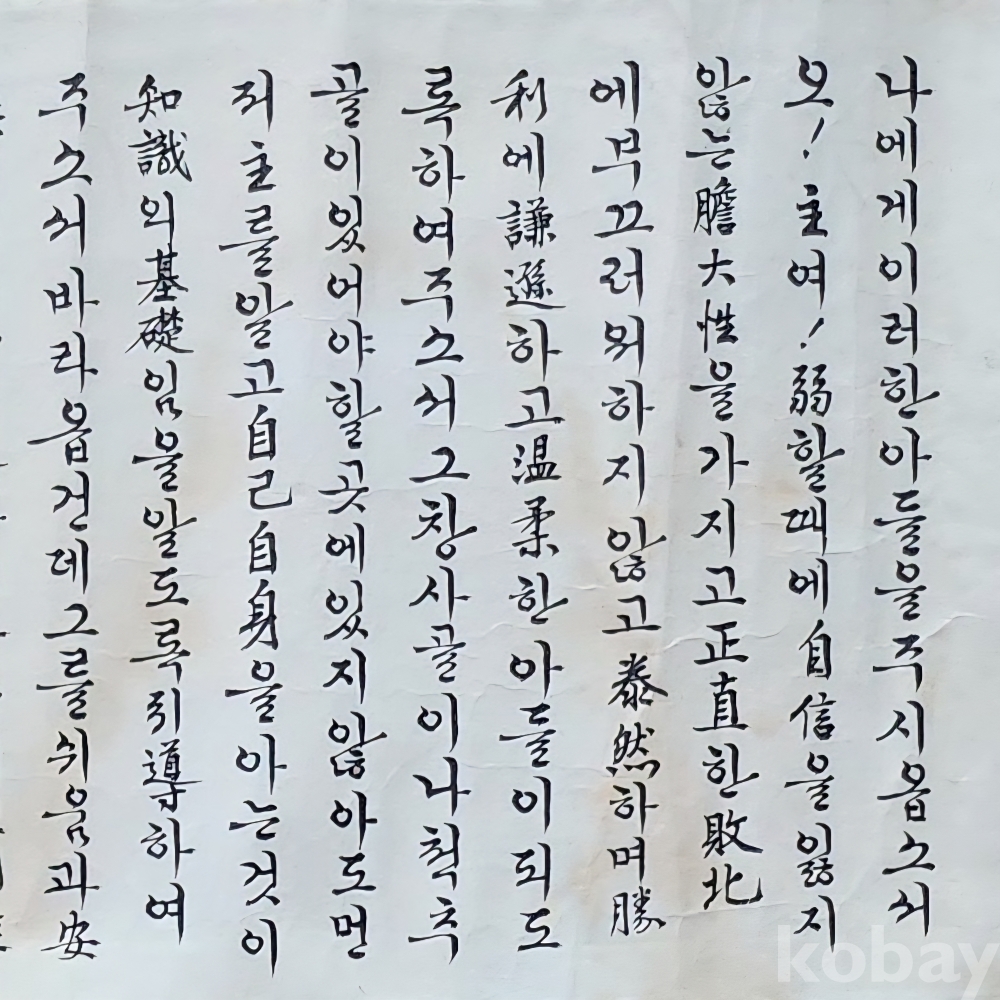 나에게이러한아들을주시옵소서
오!主여!弱할때에自信을잃지
않는膽大性을가지고正直한敗北
에부끄러워하지않고泰然하며勝
利에謙遜하고温柔한아들이되도
록하여주소서그창사골이나척추
골이있어야할곳에있지않아도먼
저主를알고自己自身을아는것이
知識의基礎임을알도록引導하여
주소서바라옵건데그를쉬움과安
kobay